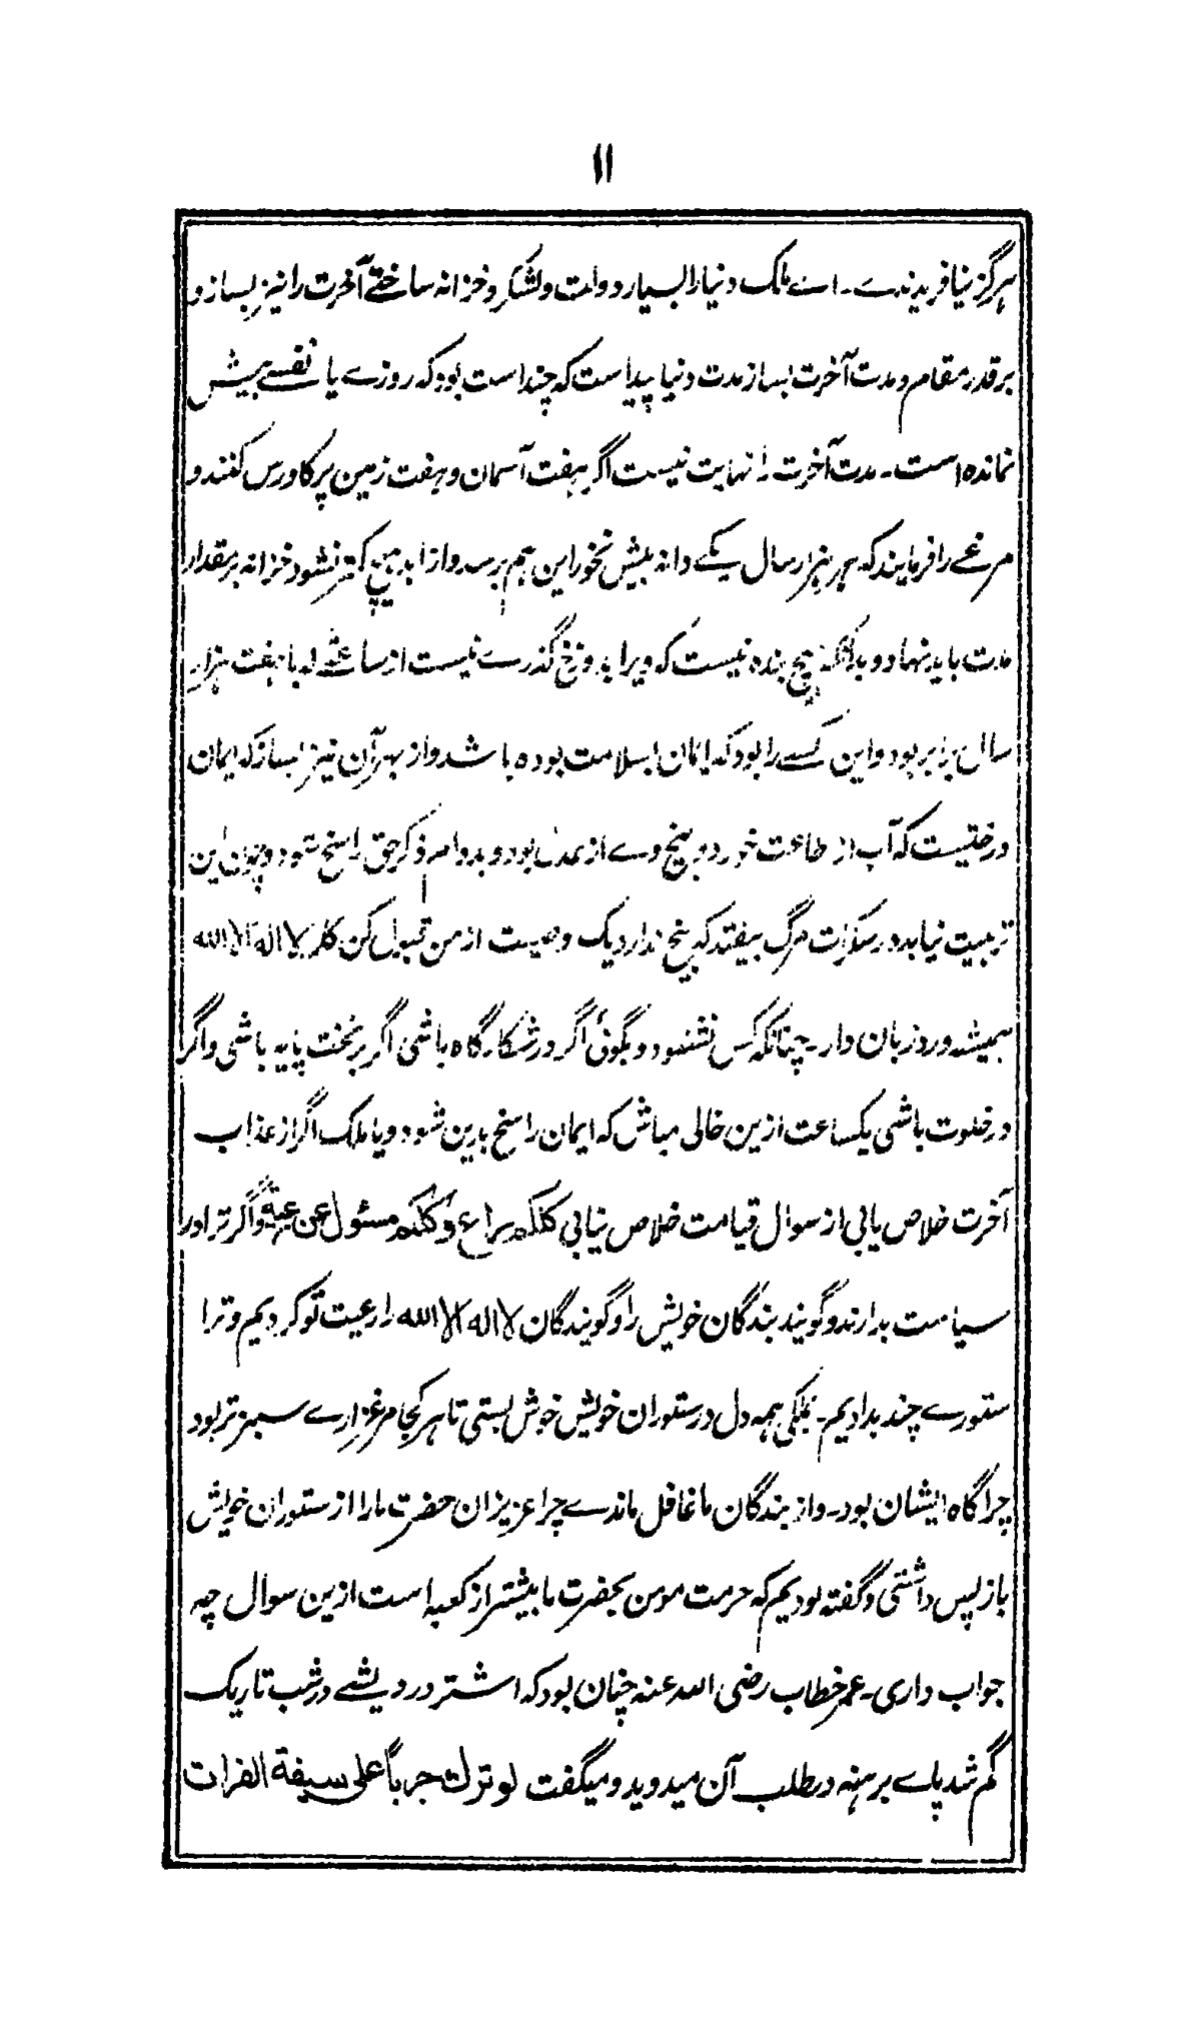 ۱۱
ہرگز نیافریدندے۔ اے ملک دنیا را بسیار دولت و لشکر و خزانہ ساختے آخرت را نیز بساز و
بر قدر مقام و مدت آخرت بساز مدت دنیا پیداست کہ چند است بود کہ روزے یا نفسے بیش
نماندہ است۔ مدت آخرت را نہایت نیست اگر ہفت آسمان و ہفت زمین پر کاورس کنند و
مرغے را فرمایند کہ ہر ہزار سال یکے دانہ بیش نخور این ہم برسد و از ابد ہیچ کمتر نشود خزانہ بر مقدار
مدت باید نہاد و بدانکہ ہیچ بندہ نیست کہ ویرا بدوزخ گذرے نیست از ساعتے تا ہفت ہزار
سال برابر بود و این کسے را بود کہ ایمان بسلامت بودہ باشد و از بہر آن نیز بساز کہ ایمان
درختیست کہ آب از طاعت خورد و بیخ وے از عدل بود و بدوام ذکر حق راسخ شود و چون این
تربیت نیابد در سکرات مرگ بیفتد کہ بیخ ندارد یک وصیت از من قبول کن کلمہ لا الہ الا اللہ
ہمیشہ ورد زبان دار۔ چنانکہ کس نشنود و بگوئ اگر در شکار گاہ باشی اگر بر تخت پایہ باشی و اگر
در خلوت باشی یکساعت ازین خالی مباش کہ ایمان راسخ بدین شود و یا ملک اگر از عذاب
آخرت خلاص یابی از سوال قیامت خلاص نیابی کلکم راع و کلکم مسئول عن رعیتہ و اگر ترا در
سیاست بدارند و گویند بندگان خویش را و گویندگان لا الہ الا اللہ را رعیت تو کردیم و ترا
ستورے چند بدادیم۔ بملکی ہمہ دل در ستوران خویش خوش بستی تا ہر کجا مرغزارے سبز تر بود
چراگاہ ایشان بود۔ و از بندگان ما غافل ماندے چرا عزیزان حضرت ما را از ستوران خویش
باز پس داشتی و گفتہ بودیم کہ حرمت مومن بحضرت ما بیشتر از کعبہ است ازین سوال چہ
جواب داری۔ عمر خطاب رضی اللہ عنہ چنان بود کہ اشتر درویشے در شب تاریک
گم شد پاے برہنہ در طلب آن میدوید و میگفت لو ترك جربا على سيفة الفرات